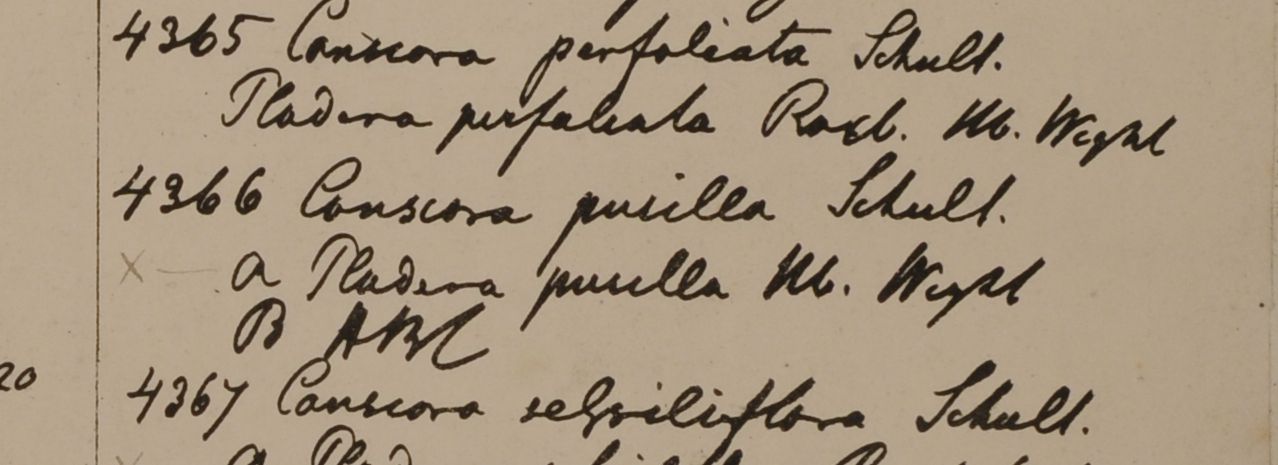 4365 Canscora perfoliata Schult.
Pladera perfoliata Roxb. Hb. Wight
4366 Canscora pusilla Schult.
× — a Pladera pusilla Hb. Wight
B HBC
20
4367 Canscora sessiliflora Schult.
a Plad